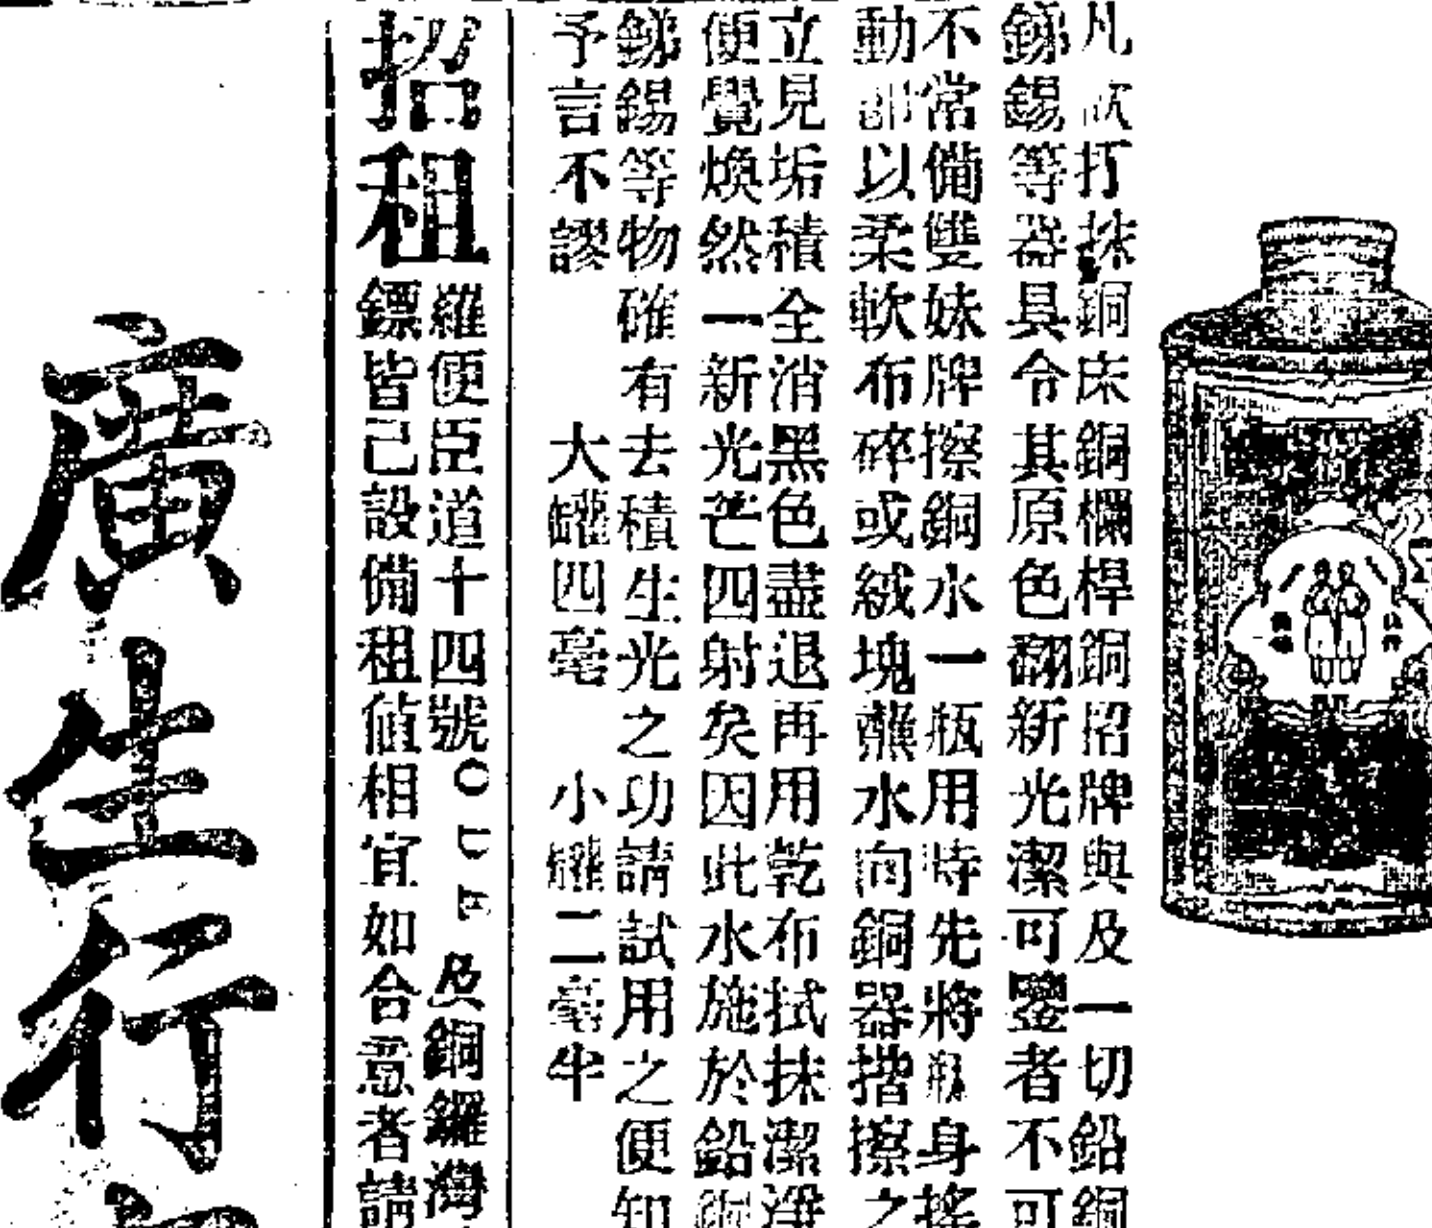 凡欲打抹銅床銅欄桿銅招牌與及一切鉛銅
銻錫等器具令其原色翻新光潔可鑒者不可
不常備雙妹牌擦銅水一瓶用時先將瓶身搖
動部以柔軟布碎或絨塊蘸水向銅器揩擦之
立見垢積全消黑色盡退再用乾布拭抹潔淨
便覺煥然一新光芒四射矣因此水施於鉛銅
銻錫等物確有去積生光之功請試用之便知
予言不謬
大罐四毫 小罐二毫半
招租
羅便臣道十四號〇七E及銅鑼灣
鏢皆己設備租值相宜如合意者請
廣生行